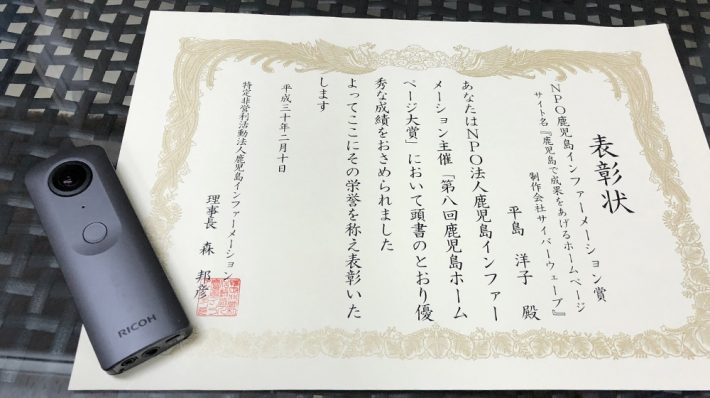 表彰状
NPO鹿児島インファーメーション賞
サイト名『鹿児島で成果をあげるホームページ
制作会社サイバーウェーブ』
平島 洋子 殿
あなたはNPO法人鹿児島インファー
メーション主催「第八回鹿児島ホーム
ページ大賞」において頭書のとおり優
秀な成績をおさめられました
よってここにその栄誉を称え表彰いた
します
平成三十年二月十日
特定非営利活動法人鹿児島インファーメーション
理事長 森 邦彦
RICOH